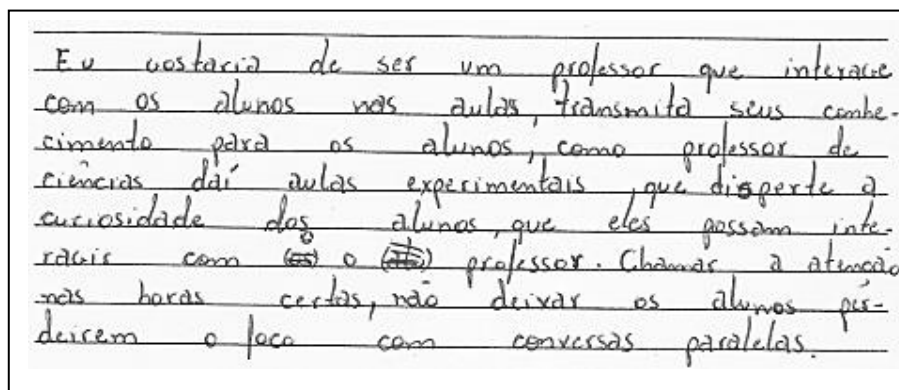 Eu gostaria de ser um professor que interage
com os alunos nas aulas, transmita seus conhe-
cimento para os alunos, como professor de
ciências daí aulas experimentais, que disperte a
curiosidade dos alunos, que eles possam inte-
ragir com o professor. Chamar a atenção
nas horas certas, não deixar os alunos per-
deirem o foco com conversas paralelas.